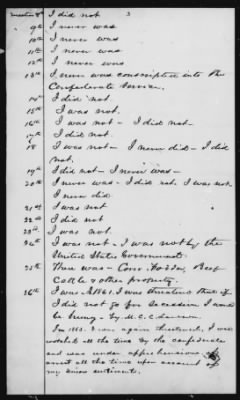 Question 8th I did not 3
9th I never was
10th I never was
11th I never was
12th I never was
13th I never was conscripted into the
Confederate Service.
14th I did not
15th I was not
16th I was not - I did not -
17th I did not
18 I was not - I never did - I did
not.
19th I did not - I never was -
20th I never was - I did not, I was not
I never did
21st I was not
22nd I did not
23d I was not.
24th I was not - I was not by the
United States Government.
25th There was - Corn Fodder, Beef
Cattle & other property.
26th I was - 1861. I was threatened that if
I did not go for Secession I would
be hung - by M. C. C.
In 1863. I was again threatened, I was
watched all the time by the confederates
and was under apprehensions of
arrest all the time upon account of
my Union sentiments.